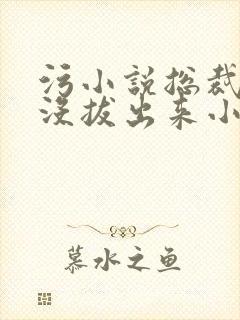 污小说总裁
没拔出来小
慕水之鱼